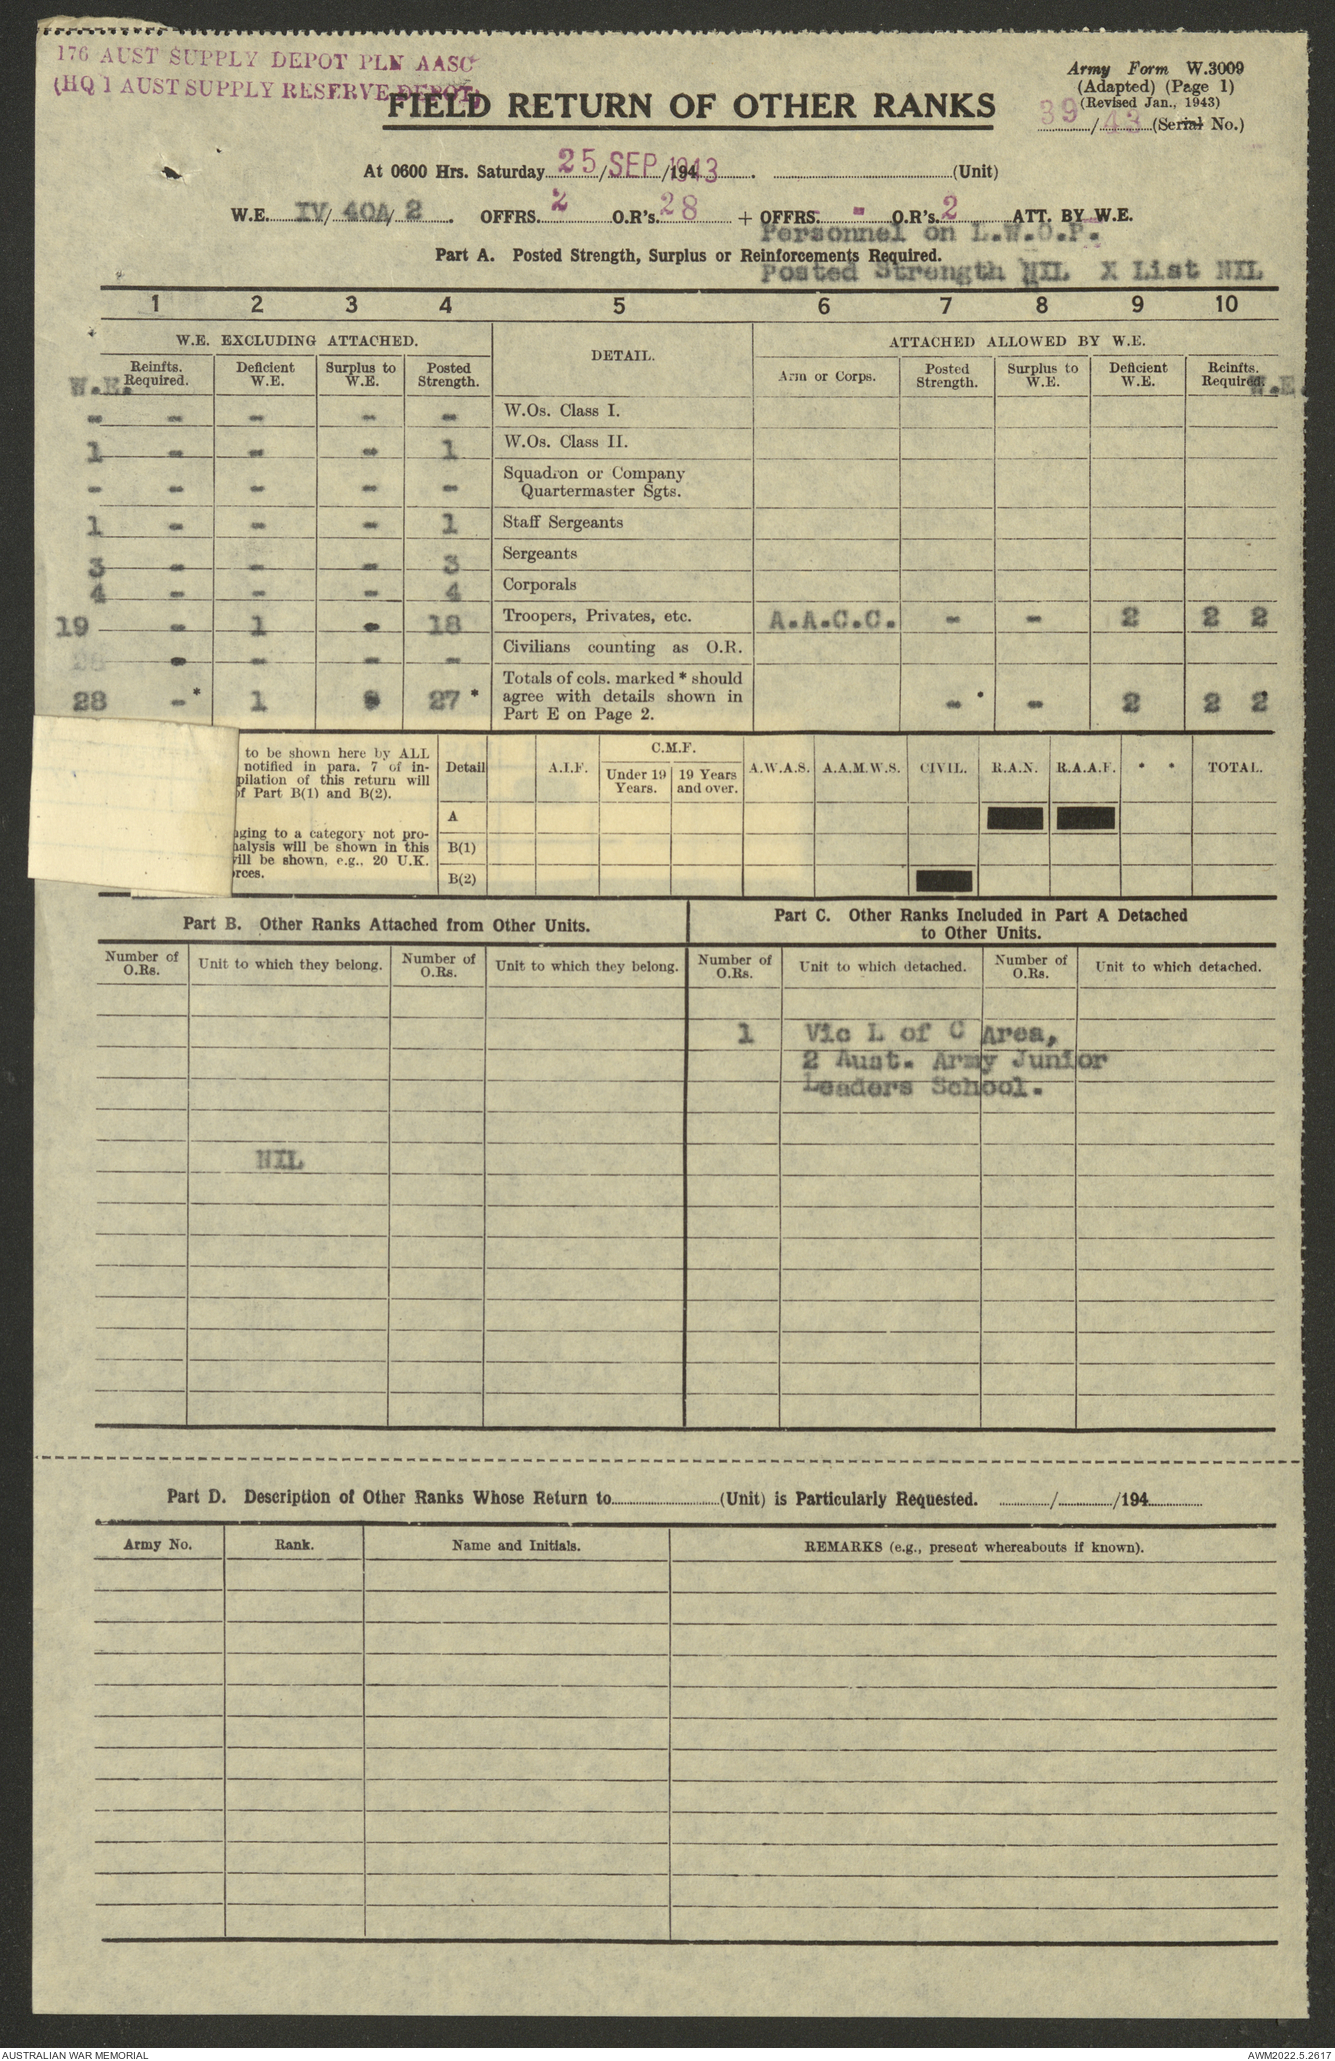 176 AUST SUPPLY DEPOT PLN AASC
(HQ 1 AUST SUPPLY RESERVE DEPOT)
Army Form W.3009
(Adapted) (Page 1)
(Revised Jan., 1943)
39/43 (Serial No.)
FIELD RETURN OF OTHER RANKS
At 0600 Hrs. Saturday 25/SEP/1943. (Unit)
W.E. IV/40A/2. OFFRS. 2 O.R's. 28 + OFFRS. - O.R's. 2 ATT. BY W.E.
Personnel on L.W.O.P.
Part A. Posted Strength, Surplus or Reinforcements Required.
Posted Strength NIL X List NIL
1 2 3 4 5 6 7 8 9 10
W.E. EXCLUDING ATTACHED. DETAIL. ATTACHED ALLOWED BY W.E.
W.E. Reinfts. Required. Deficient W.E. Surplus to W.E. Posted Strength. Arm or Corps. Posted Strength. Surplus to W.E. Deficient W.E. Reinfts. Required. W.E.
- - - - - W.Os. Class I.
1 - - - 1 W.Os. Class II.
- - - - - Squadron or Company Quartermaster Sgts.
1 - - - 1 Staff Sergeants
3 - - - 3 Sergeants
4 - - - 4 Corporals
19 - 1 - 18 Troopers, Privates, etc. A.A.C.C. - - 2 2 2
- - - - Civilians counting as O.R.
28 -* 1 27* Totals of cols. marked * should agree with details shown in Part E on Page 2. -* - 2 2 2
to be shown here by ALL
notified in para. 7 of in-
pilation of this return will
of Part B(1) and B(2).
ging to a category not pro-
nalysis will be shown in this
will be shown, e.g., 20 U.K.
rces.
Detail A.I.F. C.M.F. Under 19 Years. 19 Years and over. A.W.A.S. A.A.M.W.S. CIVIL. R.A.N. R.A.A.F. * * TOTAL.
A
B(1)
B(2)
Part B. Other Ranks Attached from Other Units.
Part C. Other Ranks Included in Part A Detached
to Other Units.
Number of O.Rs. Unit to which they belong. Number of O.Rs. Unit to which they belong. Number of O.Rs. Unit to which detached. Number of O.Rs. Unit to which detached.
1 Vic L of C Area,
2 Aust. Army Junior
Leaders School.
NIL
Part D. Description of Other Ranks Whose Return to (Unit) is Particularly Requested. / /194
Army No. Rank. Name and Initials. REMARKS (e.g., present whereabouts if known).
AUSTRALIAN WAR MEMORIAL AWM2022.5.2617